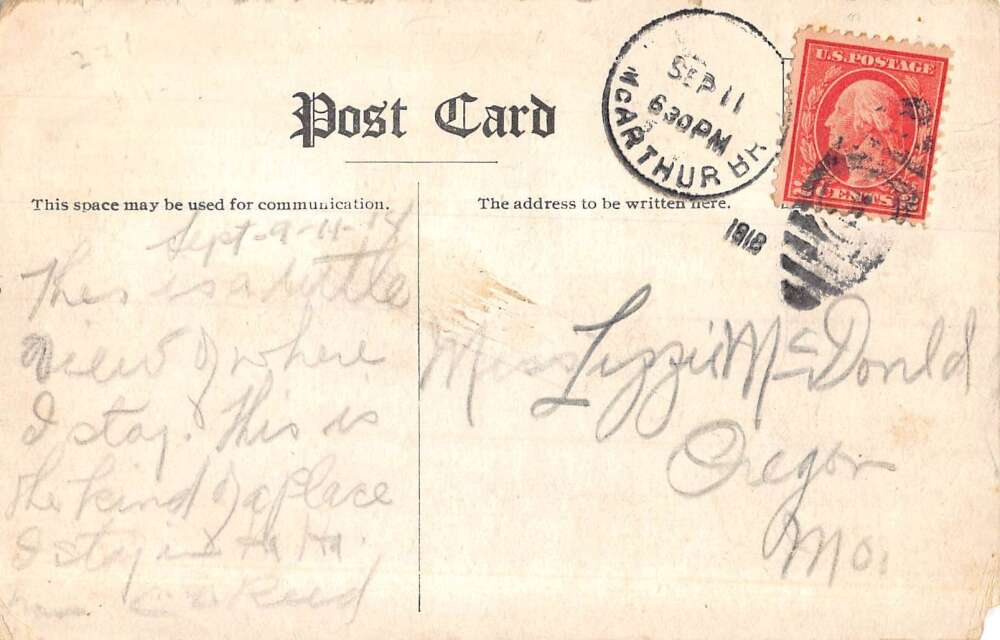 Post Card
SEP 11
630 PM
MCARTHUR BR
1912
U.S. POSTAGE
CENTS
This space may be used for communication.
The address to be written here.
Sept-9-11-
This is a little
view of where
I stay. This is
the kind of a place
I stay in Ha Ha
Reed
Miss Lizzie McDonld
Oregon
Mo.